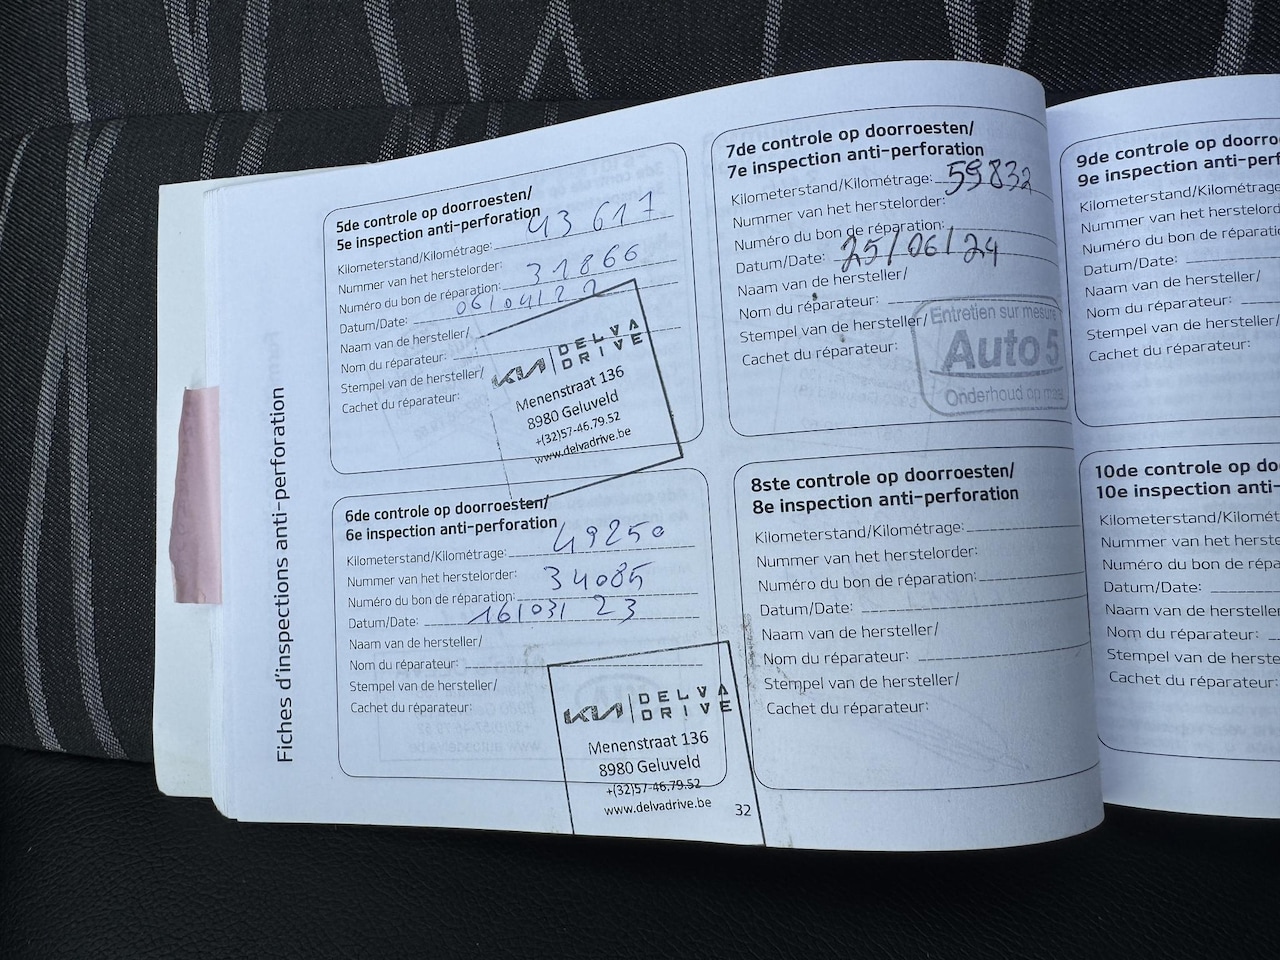 Fiches d'inspections anti-perforation
5de controle op doorroesten/
5e inspection anti-perforation
Kilometerstand/Kilométrage: 43 617
Nummer van het herstelorder:
Numéro du bon de réparation: 31866
Datum/Date: 06/04/22
Naam van de hersteller/
Nom du réparateur:
Stempel van de hersteller/
Cachet du réparateur:
KIA DELVA
DRIVE
Menenstraat 136
8980 Geluveld
+(32)57-46.79.52
www.delvadrive.be
6de controle op doorroesten/
6e inspection anti-perforation
Kilometerstand/Kilométrage: 49250
Nummer van het herstelorder:
Numéro du bon de réparation: 34085
Datum/Date: 16/03/23
Naam van de hersteller/
Nom du réparateur:
Stempel van de hersteller/
Cachet du réparateur:
KIA DELVA
DRIVE
Menenstraat 136
8980 Geluveld
+(32)57-46.79.52
www.delvadrive.be
32
7de controle op doorroesten/
7e inspection anti-perforation
Kilometerstand/Kilométrage: 59832
Nummer van het herstelorder:
Numéro du bon de réparation:
Datum/Date: 25/06/24
Naam van de hersteller/
Nom du réparateur:
Stempel van de hersteller/
Cachet du réparateur:
Entretien sur mesure
Auto5
Onderhoud op maat
8ste controle op doorroesten/
8e inspection anti-perforation
Kilometerstand/Kilométrage:
Nummer van het herstelorder:
Numéro du bon de réparation:
Datum/Date:
Naam van de hersteller/
Nom du réparateur:
Stempel van de hersteller/
Cachet du réparateur:
9de controle op doorro
9e inspection anti-perf
Kilometerstand/Kilométrage
Nummer van het herstelord
Numéro du bon de réparati
Datum/Date:
Naam van de hersteller/
Nom du réparateur:
Stempel van de hersteller/
Cachet du réparateur:
10de controle op do
10e inspection anti-
Kilometerstand/Kilomét
Nummer van het herste
Numéro du bon de répa
Datum/Date:
Naam van de hersteller
Nom du réparateur:
Stempel van de herste
Cachet du réparateur: